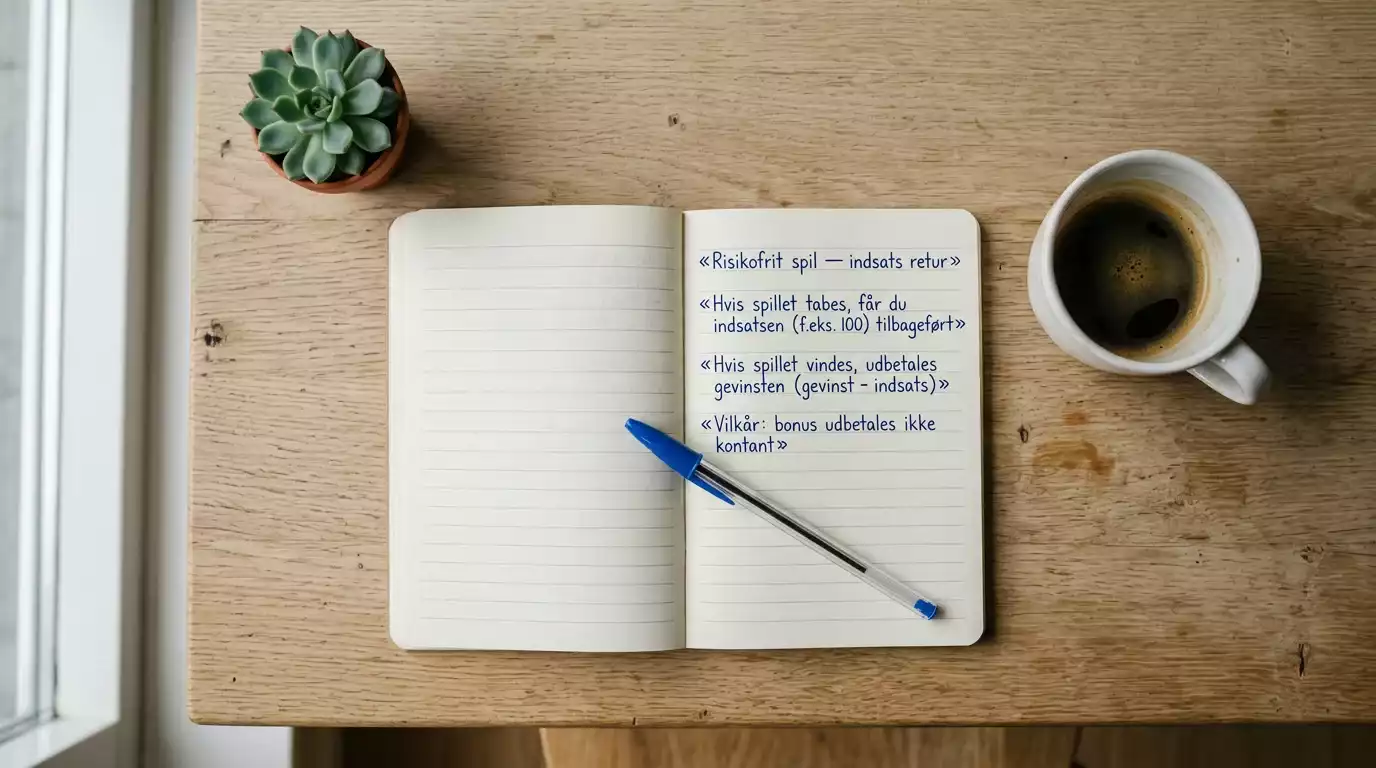 «Risikofrit spil — indsats retur»
«Hvis spillet tabes, får du
indsatsen (f.eks. 100) tilbageført»
«Hvis spillet vindes, udbetales
gevinsten (gevinst – indsats)»
«Vilkår: bonus udbetales ikke
kontant»